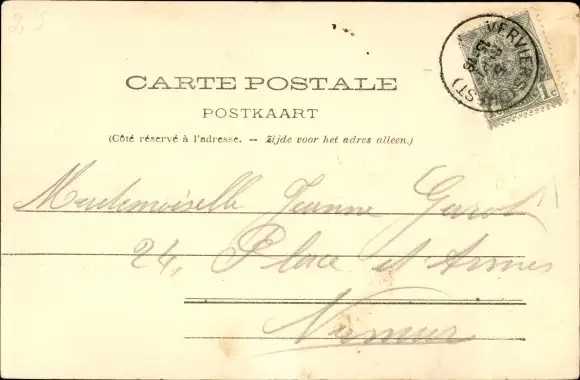 25
VERVIERS (OUEST)
1 c
CARTE POSTALE
POSTKAART
(Côté réservé à l'adresse. -- Zijde voor het adres alleen.)
Mademoiselle Jeanne Garot
24, Place d'Armes
Namur